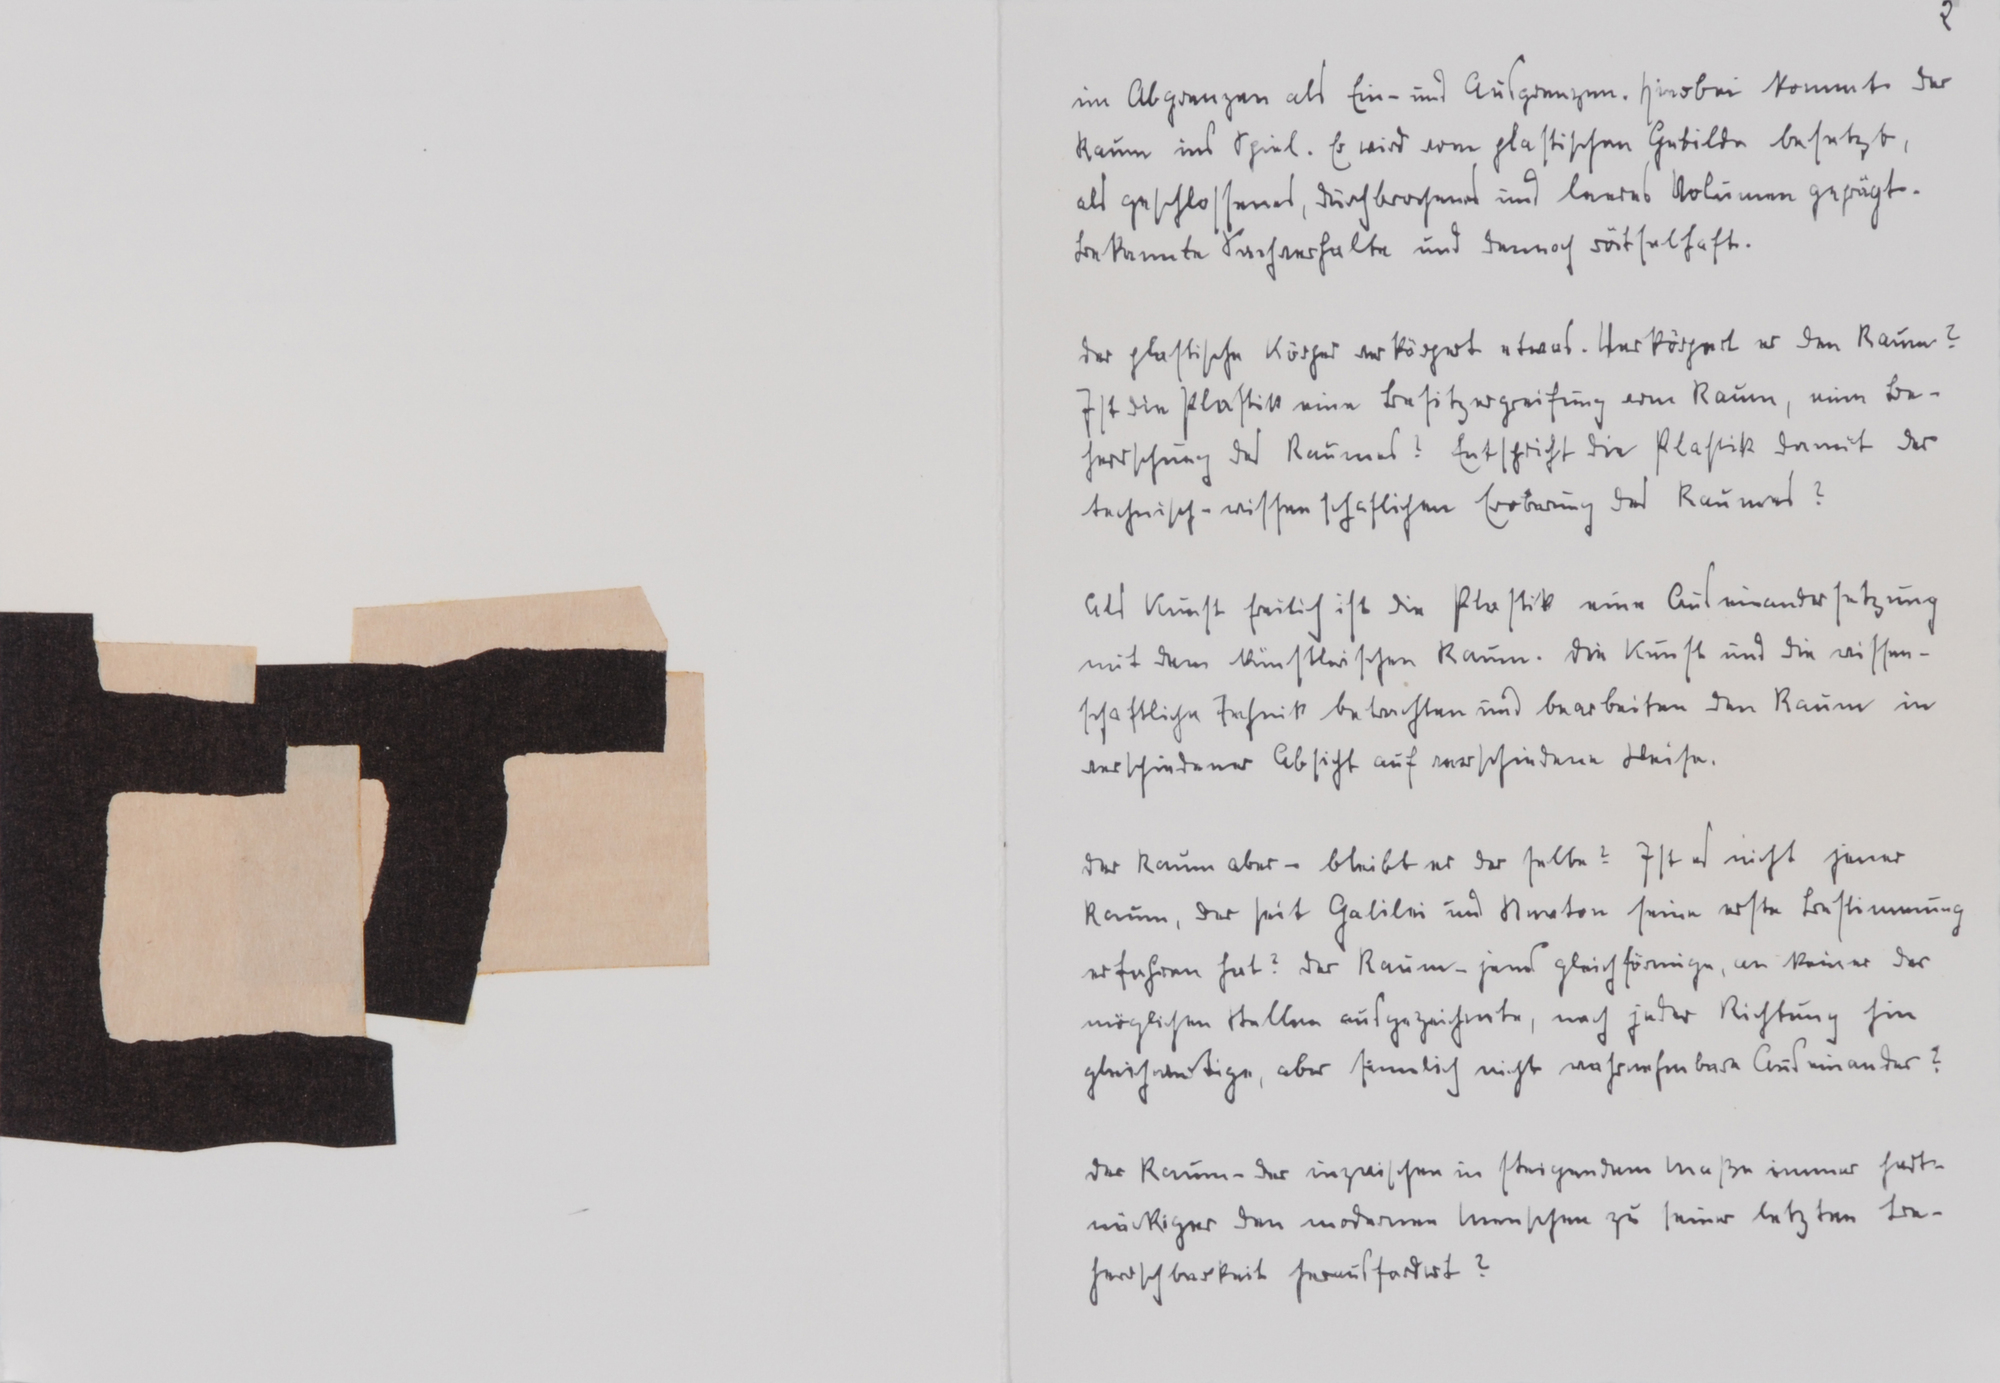 2
im Abgrenzen als Ein- und Ausgrenzen. Hierbei kommt der
Raum ins Spiel. Er wird vom plastischen Gebilde besetzt,
als geschlossenes, durchbrochenes und leeres Volumen geprägt.
Bekannte Sachverhalte und dennoch rätselhaft.
Der plastische Körper verkörpert etwas. Verkörpert er den Raum?
Ist die Plastik eine Besitzergreifung vom Raum, eine Be-
herrschung des Raumes? Entspricht die Plastik damit der
technisch-wissenschaftlichen Eroberung des Raumes?
Als Kunst freilich ist die Plastik eine Auseinandersetzung
mit dem künstlerischen Raum. Die Kunst und die wissen-
schaftliche Technik betrachten und bearbeiten den Raum in
verschiedener Absicht auf verschiedene Weise.
Der Raum aber - bleibt er der selbe? Ist es nicht jener
Raum, der seit Galilei und Newton seine erste Bestimmung
erfahren hat? Der Raum - jenes gleichförmige, an keiner der
möglichen Stellen ausgezeichnete, nach jeder Richtung hin
gleichwertige, aber sinnlich nicht wahrnehmbare Auseinander?
Der Raum - der inzwischen in steigendem Maße immer hart-
näckiger den modernen Menschen zu seiner letzten Be-
herrschbarkeit herausfordert?